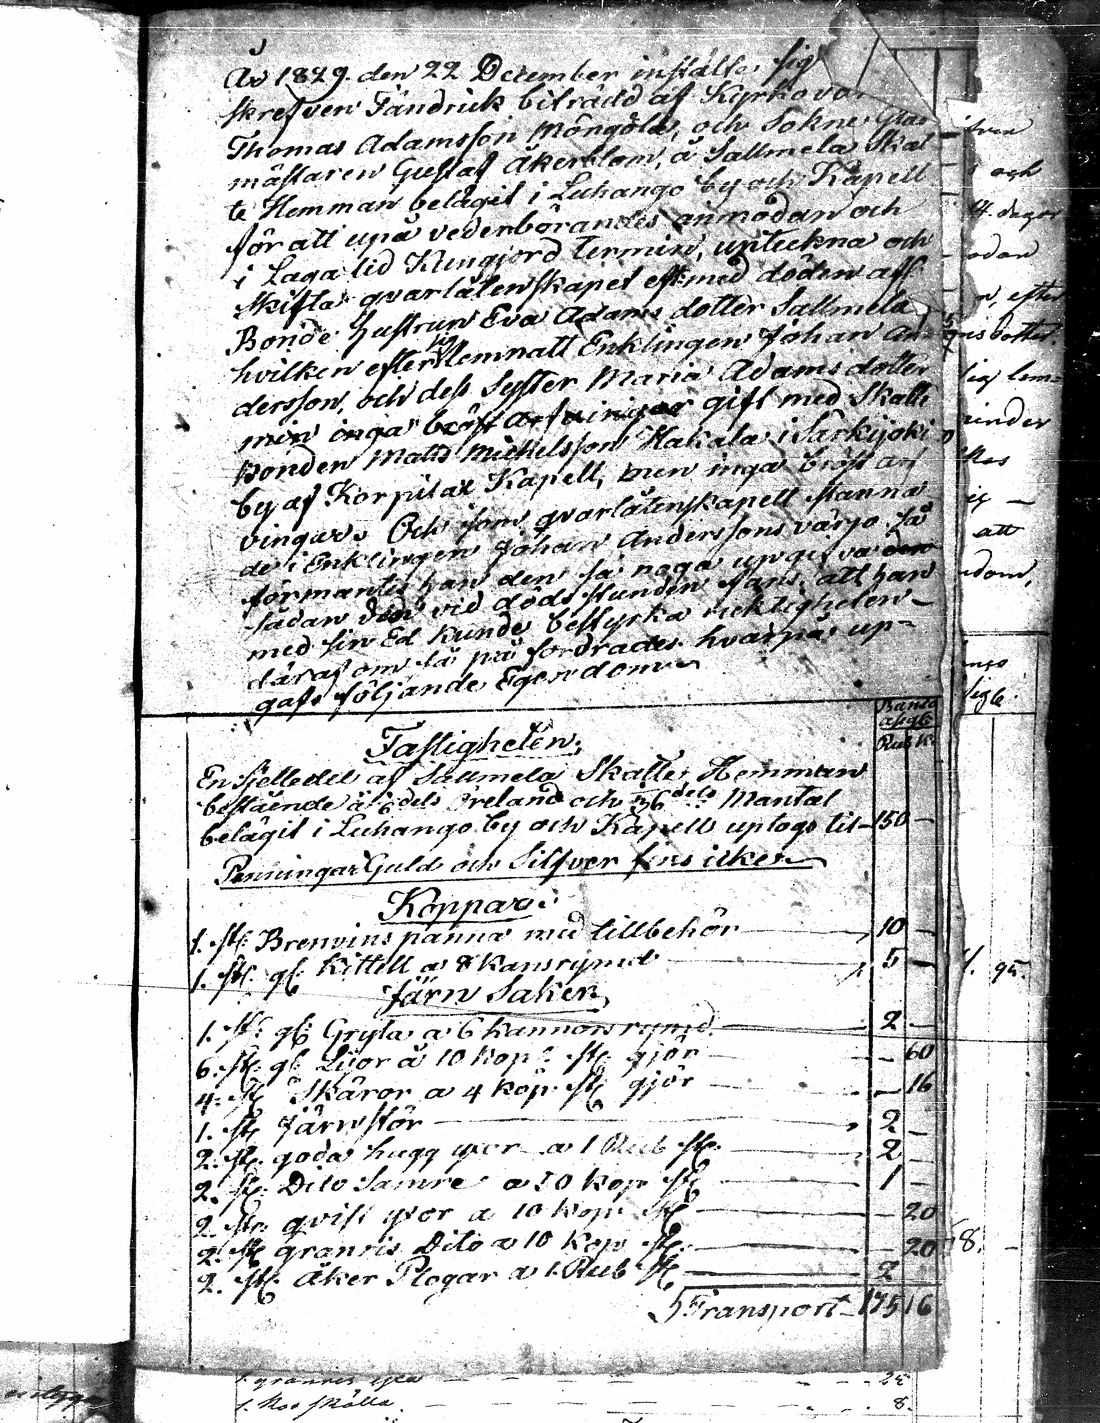 År 1829. den 22 December instälte sig
skrefven Fändrick biträdd af Kyrkovar
Thomas Adamsson Möngölä, och Sokne Glas
mästaren Gustaf Åkerblom, å Sallmela Skat
te Hemman belägit i Luhango by och Kapell
för att upå vederbörandes anmodan och
i Laga tid Kungjord termin, upteckna och
Skifta qvarlåtenskapet efter med döden afl
Bonde Hustrun Eva Adams dotter Sallmela
hvilken efter sig lemnatt Enklingen Johan An
dersson, och dess Syster Maria Adams dotter
min inga bröst arfvingar gift med Skatte
Bonden Matts Michelsson Hakala i Särkijoki
by af Korpilax Kapell, men inga bröst arf
vingar. Och som qvarlåtenskapett stanna
de i Enklingen Johan Anderssons värjo. Så
förmantes han den så noga upgifva den
sådan den vid döds stunden fans, att han
med sin Ed kunde bestyrka ricktigheten
däraf om så på fordrades. hvarpå up-
gafs följande Egendom
Banco
assig
Rub K.
Fastigheten,
En fjelledel af Sallmela Skatte, Hemman
bestående å 6 dels Öreland och 36 dels Mantal
belägit i Luhango by och Kapell uptogs til 150 —
Penningar Guld och Silfver fins icke
Koppar:
1. st: Brenvins panna med tillbehör 10 —
1. st: gl: Kittell a 8 kans rymd 5 —
Järn Saker,
1. st: gl: Gryta a 6 kannors rymd 2 —
6. st: gl: Liior à 10 kop: st: gjör — 60
4. st: Skäror a 4 kop: st: gjör — 16
1. st: Järnstör 2 —
2. st: goda hugg yxor a 1 Rub st: 2 —
2. st: Dito Sämre a 50 kop st: 1 —
2. st: qvist yxor a 10 kop: st: — 20
2. st: granris Dito a 10 kop st: — 20
2. st: Åker Plogar a 1. Rub st: 2
Transport 175 16
och
dagar
efter
dotter.
att
dom,
95.
8. —
1. granris yxa 25
1. Koo skälla 8.